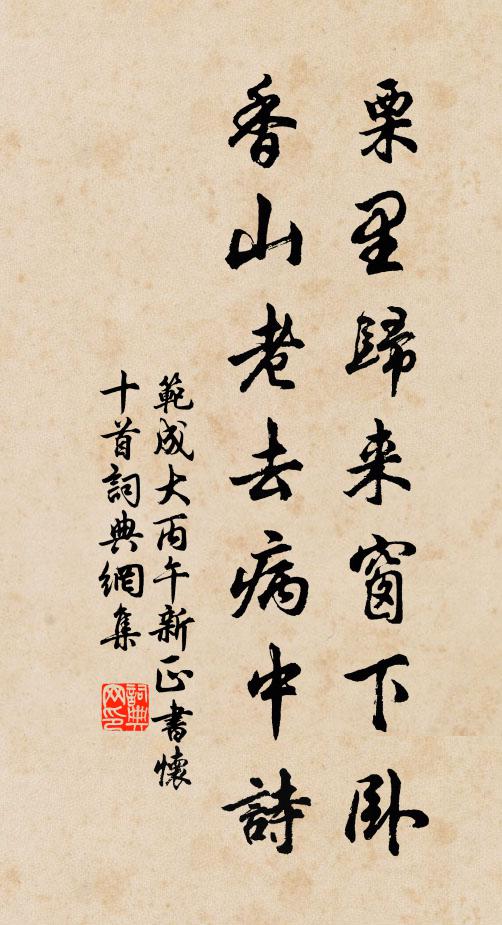 栗里歸来窗下卧
香山老去病中詩
範成大丙午新正書懷
十首詞典網集
詞典网印